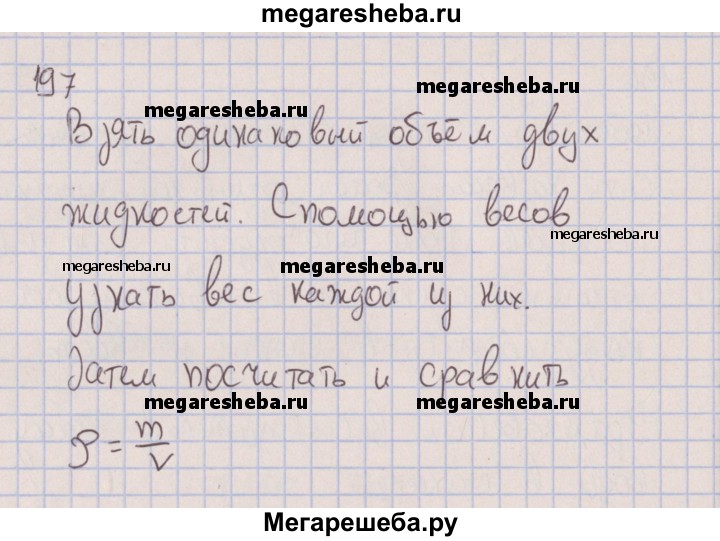 megaresheba.ru
197
megaresheba.ru
megaresheba.ru
Взять одинаковый объём двух
жидкостей. С помощью весов
megaresheba.ru
megaresheba.ru
megaresheba.ru
узнать вес каждой из них.
Затем посчитать и сравнить
megaresheba.ru
megaresheba.ru
ρ = m/V
Мегарешеба.ру